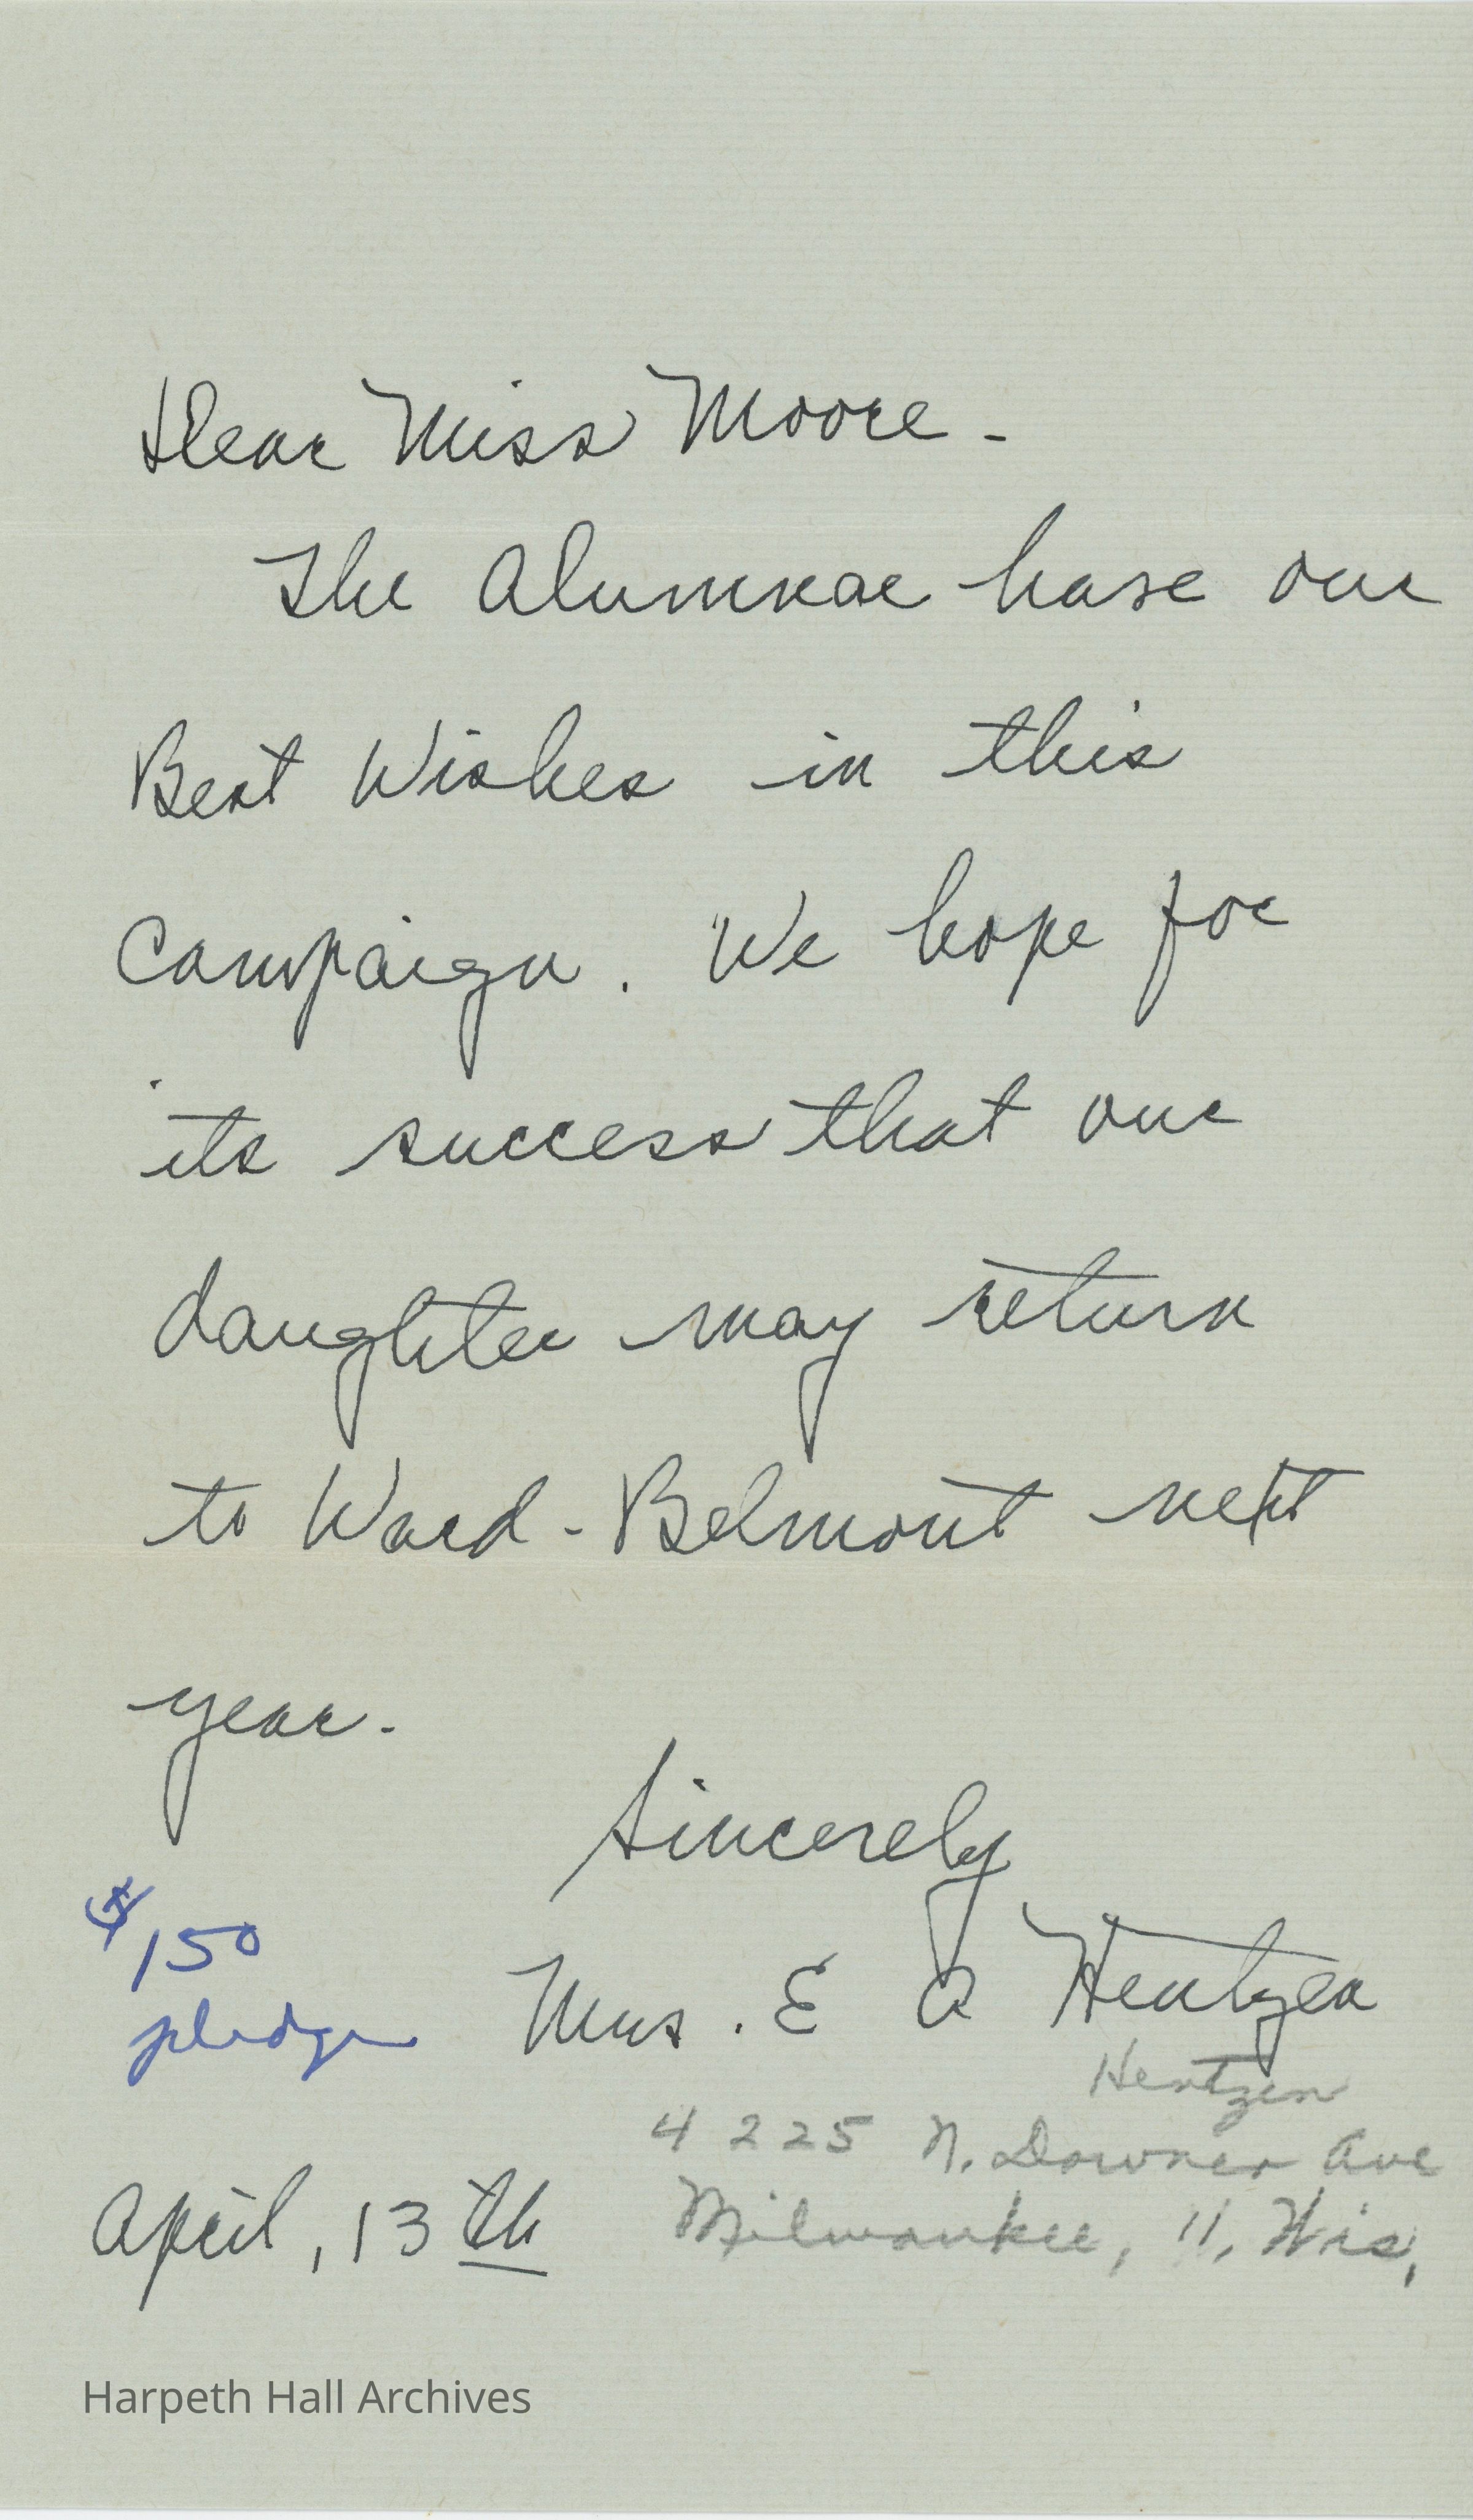 Dear Miss Moore -
The Alumnae have our
Best Wishes in this
Campaign. We hope for
its success that our
daughter may return
to Ward-Belmont next
year.
Sincerely
$150
pledge
Mrs. E A Hentzen
Hentzen
4225 N. Downer Ave
Milwaukee, 11, Wis,
April, 13th
Harpeth Hall Archives